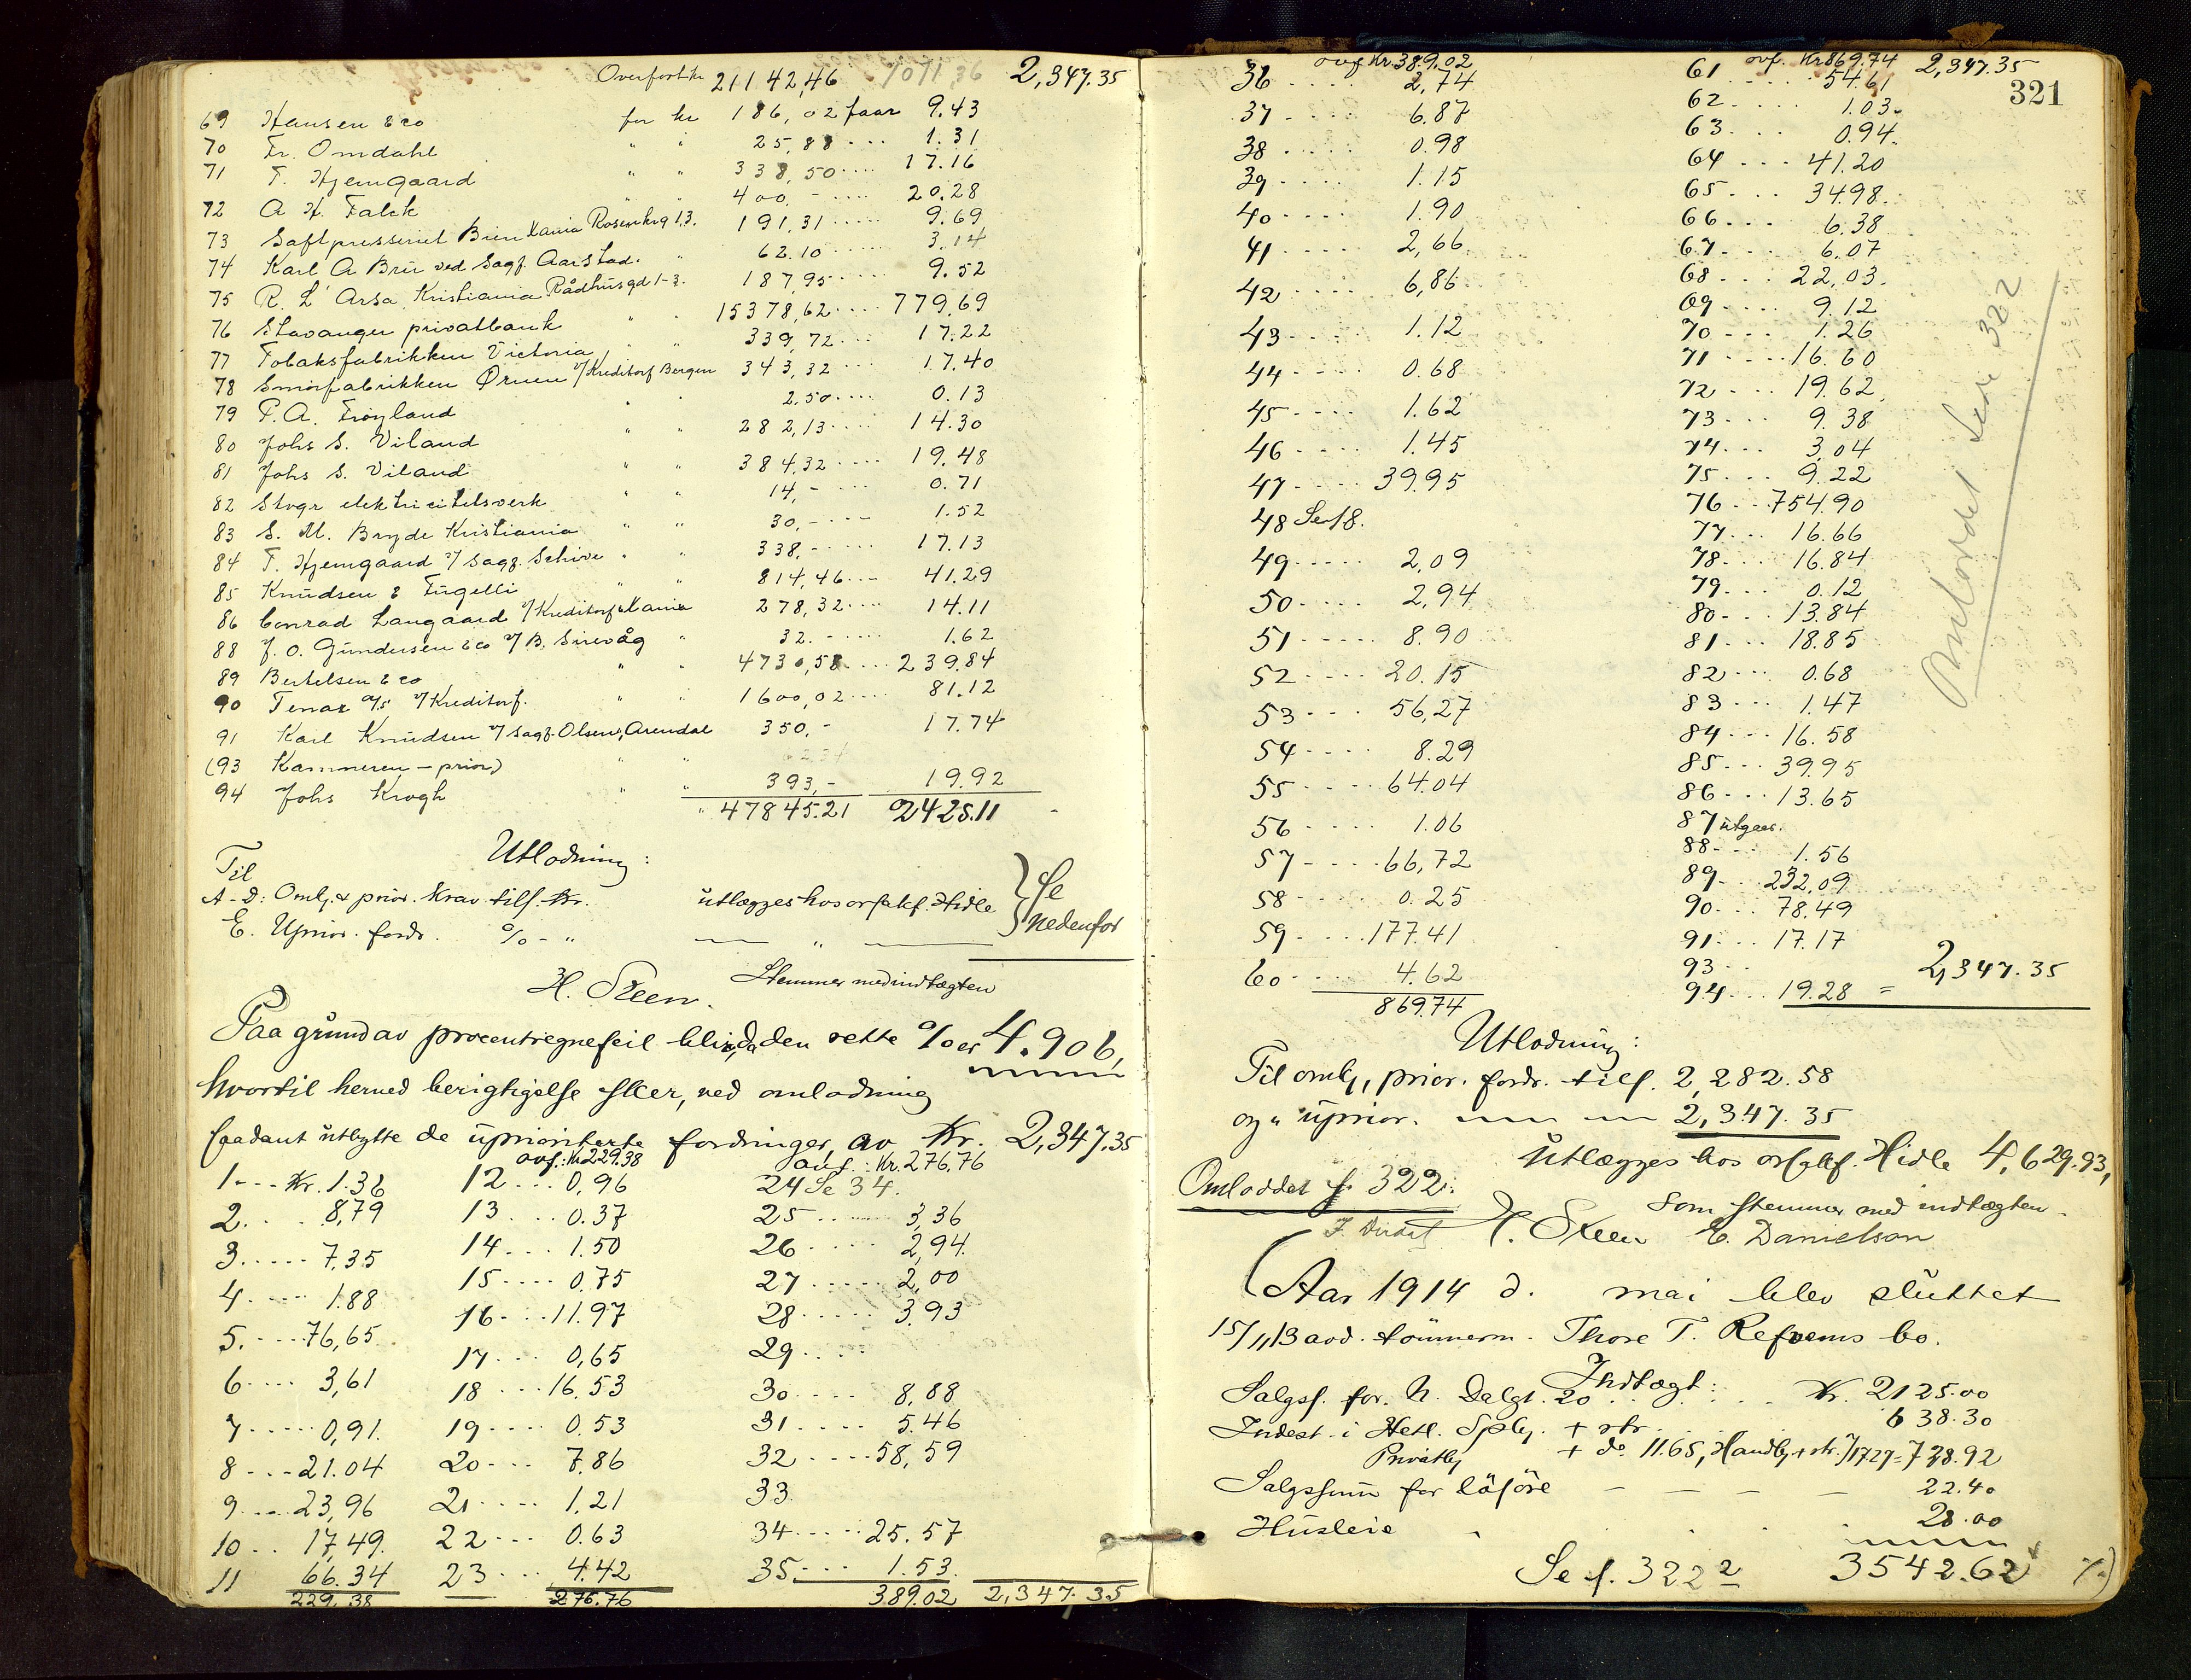 Overført kr 21142,46 1071,36 2,347.35
69 Hansen & co for kr 186,02 faar 9.43
70 Fr. Omdahl " " 25,88 ... 1.31
71 T. Hjemgaard " " 338,50 .... 17.16
72 A H. Falck " " 400,- .... 20.28
73 Saftpresseriet Bien Kania Rosenkrg 13. 191,31 ..... 9.69
74 Karl A Brü ved Sagf. Aarstad. " 62.10 ..... 3.14
75 R. L' Arsa Kristiania Rådhusgd 1-3. 187,95 ..... 9.52
76 Stavanger privatbank " " 15378,62 .... 779,69
77 Tobaksfabrikken Victoria " " 339,72 ... 17.22
78 Smørfabrikken Ørnen v/ Kreditorf Bergen 343,32 ... 17.40
79 P.A. Frøyland " " 2,50 .... 0.13
80 Johs S. Viland " " 282,13 .... 14.30
81 Johs S. Viland " " 384,32 ..... 19.48
82 Stvgr elektricitetsverk " " 14,- .... 0.71
83 S. M. Bryde Kristiania " " 30,- ... 1.52
84 T. Hjemgaard v/ Sagf. Schive " " 338,- .... 17.13
85 Knudsen & Fugelli " " 814,46 ... 41.29
86 Conrad Langaard v/ Kreditorf Kania 278,32 .... 14.11
88 J. O. Gundersen & co v/ B. Sirevåg " 32.- ..... 1.62
89 Bertelsen & co " " 4730,58 .... 239.84
90 Tenax A/S v/ Kreditorf. " " 1600,02 .... 81.12
91 Karl Knudsen v/ Sagf. Olsen, Arendal 350,- 17.74
(93 Kæmneren - prior) " "
94 Johs Krogh " " 393,- 19.92
" 47845.21 2425.11
Utlodning:
Til
A-D: Omk. & prior. Krav tils. Kr. utlægges hos orsakf. Hidle } Se
E. Uprior. fordr. % - " — " — } nedenfor
H. Steen. Stemmer med indtægten
Paa grund av procentregnefeil blir, da den rette % er 4.906,
hvortil herved berigtigelse skeer, ved omlodning
saadant utbytte de uprioriterte fordringer av Kr. 2,347.35
ovf.: Kr 229.38 ovf.: Kr. 276,76
1 ... Kr. 1.36 12 ... 0,96 24 Se 34.
2. .. 8,79 13 ... 0.37 25 ..... 3,36
3 ..... 7,35 14 ... 1.50 26 ..... 2,94
4 .... 1.88 15 .... 0.75 27 ..... 2,00
5. .... 76,65 16 ... 11.97 28 ..... 3,93
6 .... 3,61 17 ... 0,65 29 ....
7 ..... 0,91. 18 ... 16.53 30 .... 8,88
8 ... 21.04 19 .... 0.53 31 .... 5.46
9 .... 23,96 20 ... 7.86 32 .... 58,59
10 .. 17,49. 21 .... 1.21 33
11 66.34 22 ... 0.63 34 ..... 25.57
229,38 23 ... 4.42 35 .... 1.53.
276.76 389.02 2,347.35
321
ovf Kr 389.02 ovf. Kr 869.74 2,347.35
36 .... 2,74 61 .... 54.61
37 .... 6.87 62 .... 1.03.
38 ..... 0.98 63 ... 0.94.
39 .... 1.15 64 ... 41.20
40 .... 1.90 65 ... 34.98.
41 ..... 2,66 66 ... 6.38
42 .... 6,86 67 ... 6,07
43 .... 1.12 68 ... 22,03.
44 .... 0.68 69 .... 9.12
45 .... 1.62 70 ... 1.26
46 .... 1.45 71 .... 16.60
47 .... 39.95 72 ... 19.62
48 Se 18. 73 ... 9.38
49 ..... 2,09 74 ... 3,04
50 .... 2,94 75 ... 9.22
51 ..... 8.90 76 ... 754.90
52 .... 20.15 77 ... 16.66
53 ... 56,27 78 ... 16.84
54 .... 8.29 79 ... 0.12
55 .... 64.04 80 ... 13.84
56 .... 1.06 81 ... 18.85
57 .... 66,72 82 ... 0.68
58 .... 0.25 83 ... 1.47
59 .... 177.41 84 ... 16.58
60 .... 4.62 85 ... 39.95
869.74 86 ... 13.65
87 utgaar.
88 ... 1.56
89 ... 232,09
90 ... 78.49
91 ... 17.17
93 ...
94 ... 19.28 = 2,347.35
Omloddet Side 322
Utlodning:
Til omk, prior. fordr. tils. 2,282.58
og " uprior. — — 2,347.35
Utlægges hos orsakf. Hidle 4,629.93,
Omloddet s. 322: som stemmer med indtægten.
H. Steen E. Danielsen
(Aar 1914 d. mai blev sluttet
15/11 13 avd. tømmerm. Thore T. Refvems bo.
Indtægt:
Salgss. for N. Dalgt. 20 .... Kr. 2125.00
Indest. i Hetl. Spbk. + str. 638.30
Privatbk + do 11.65, Handbk + str. 717.27 = 728.92
Salgssum for løsøre - - - - 22.40
Husleie 28.00
Se s. 322 2 3542.62 %)